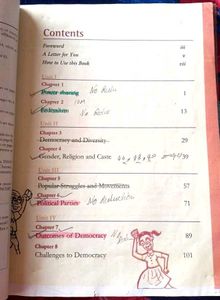 Contents
Foreword iii
A Letter for You v
How to Use this Book vii
Unit I
Chapter 1 No
Power-sharing 1
Chapter 2
Federalism No 13
Unit II
Chapter 3
Democracy and Diversity 29
Chapter 4
Gender, Religion and Caste 39
Unit III
Chapter 5
Popular Struggles and Movements 57
Chapter 6
Political Parties No Deduction 71
Unit IV
Chapter 7
Outcomes of Democracy 89
Chapter 8
Challenges to Democracy 101